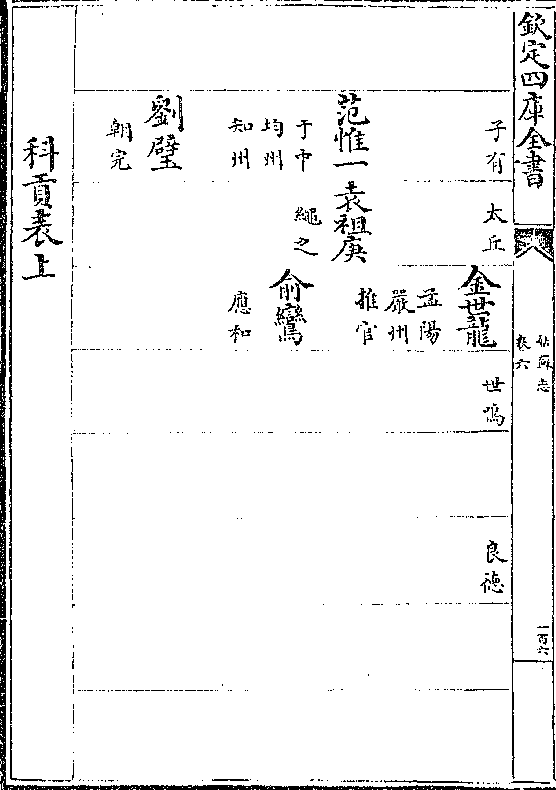 欽定四庫全書
姑蘇志
卷六
一百六
子有
范惟一
于中
均州
知州
劉璧
朝完
太丘
袁祖庚
繩之
金世龍
孟陽
嚴州
推官
俞鸞
應和
世鳴
良德
科貢表上